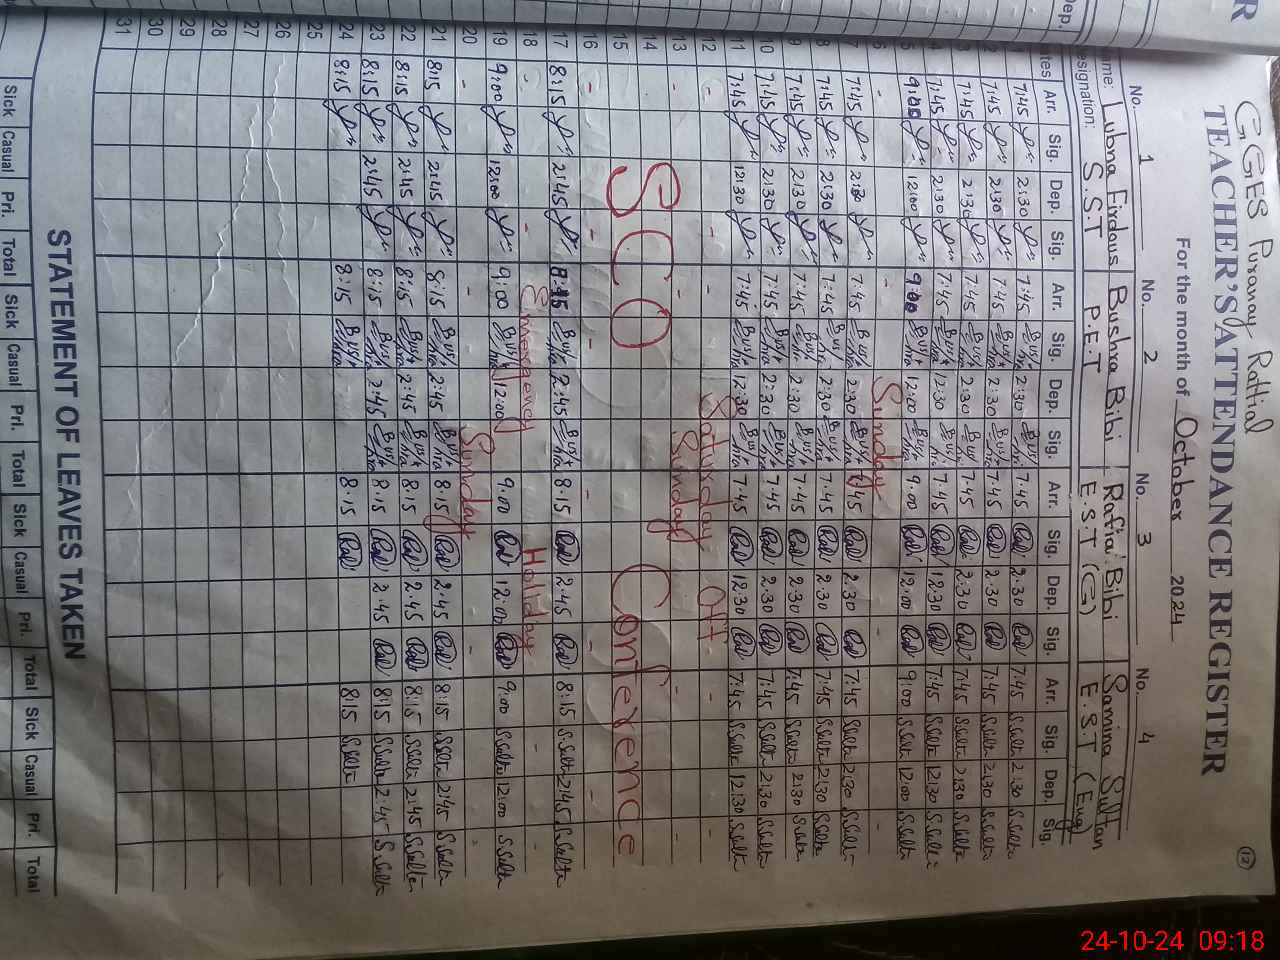 GGES Puranay Rattial
12
TEACHER'S ATTENDANCE REGISTER
For the month of October 2024
No. 1 No. 2 No. 3 No. 4
Name: Lubna Firdous Bushra Bibi Rafia Bibi Samina Sultan
Designation: S.S.T P.E.T E.S.T (G) E.S.T (Eng)
Dates Arr. Sig. Dep. Sig. Arr. Sig. Dep. Sig. Arr. Sig. Dep. Sig. Arr. Sig. Dep. Sig.
1 7:45 2:30 7:45 2:30 7.45 2.30 7:45 S.Sultan 2:30 S.Sultan
2 7:45 2:30 7:45 2:30 7.45 2.30 7:45 S.Sultan 2:30 S.Sultan
3 7:45 2:30 7:45 2:30 7.45 2:30 7:45 S.Sultan 2:30 S.Sultan
4 7:45 2:30 7:45 12:30 7.45 12.30 7:45 S.Sultan 12:30 S.Sultan
5 9:00 12:00 9:00 12:00 9.00 12.00 9:00 S.Sultan 12:00 S.Sultan
6 - - Sunday - -
7 7:45 2:30 7:45 2:30 7.45 2.30 7:45 S.Sultan 2:30 S.Sultan
8 7:45 2:30 7:45 2:30 7.45 2.30 7:45 S.Sultan 2:30 S.Sultan
9 7:45 2:30 7:45 2:30 7.45 2.30 7:45 S.Sultan 2:30 S.Sultan
10 7:45 2:30 7:45 2:30 7.45 2.30 7:45 S.Sultan 2:30 S.Sultan
11 7:45 12:30 7:45 12:30 7.45 12:30 7:45 S.Sultan 12:30 S.Sultan
12 - - Saturday Off - -
13 - - Sunday - -
14
15 SCO Conference
16 - - - - -
17 8:15 2:45 8:15 2:45 8.15 2.45 8:15 S.Sultan 2:45 S.Sultan
18 - - Emergency Holiday - -
19 9:00 12:00 9:00 12:00 9.00 12.00 9:00 S.Sultan 12:00 S.Sultan
20 - - Sunday - -
21 8:15 2:45 8:15 2:45 8.15 2.45 8:15 S.Sultan 2:45 S.Sultan
22 8:15 2:45 8:15 2:45 8.15 2.45 8:15 S.Sultan 2:45 S.Sultan
23 8:15 2:45 8:15 2:45 8.15 2.45 8:15 S.Sultan 2:45 S.Sultan
24 8:15 8:15 8.15 8:15 S.Sultan
25
26
27
28
29
30
31
STATEMENT OF LEAVES TAKEN
Sick Casual Pri. Total Sick Casual Pri. Total Sick Casual Pri. Total Sick Casual Pri. Total
24-10-24 09:18